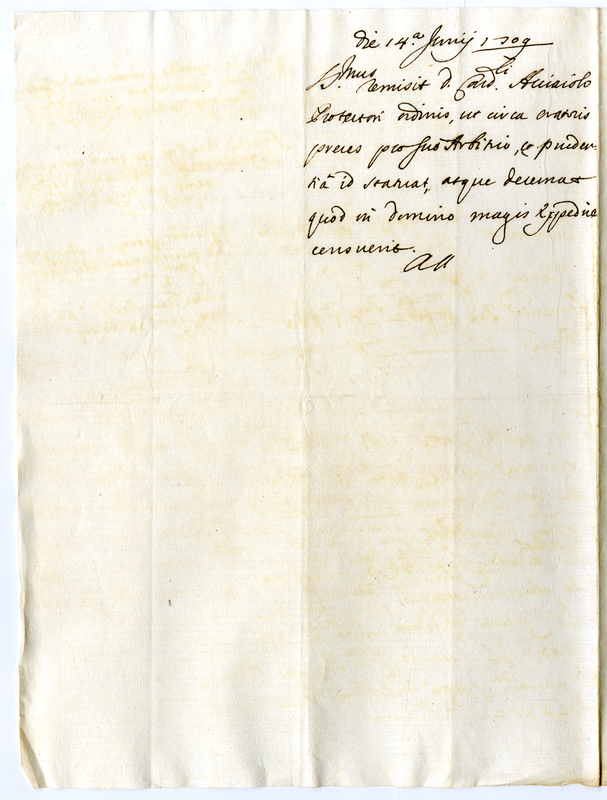 die 14.ª Junij 1709
SS.mus remisit D. Card.li Acciaiolo
Protectori ordinis, ut circa oratoris
preces pro suo Arbitrio, & pruden-
tiâ id statuat, atque decernat
quod in Domino magis expedire
censuerit.